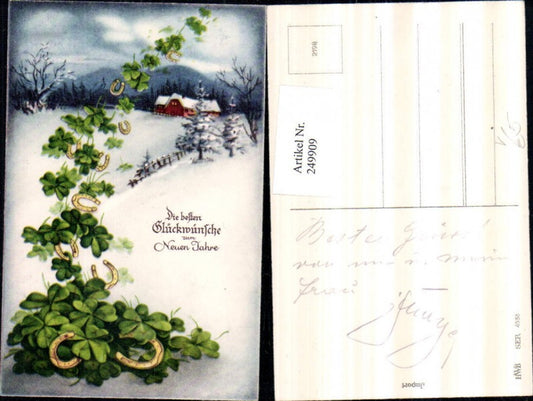 Die besten
Glückwünsche
zum
Neuen Jahre
Artikel Nr.
249909
Beste Grüsse
von uns u. mein
Frau
Import
HWB SER. 4538